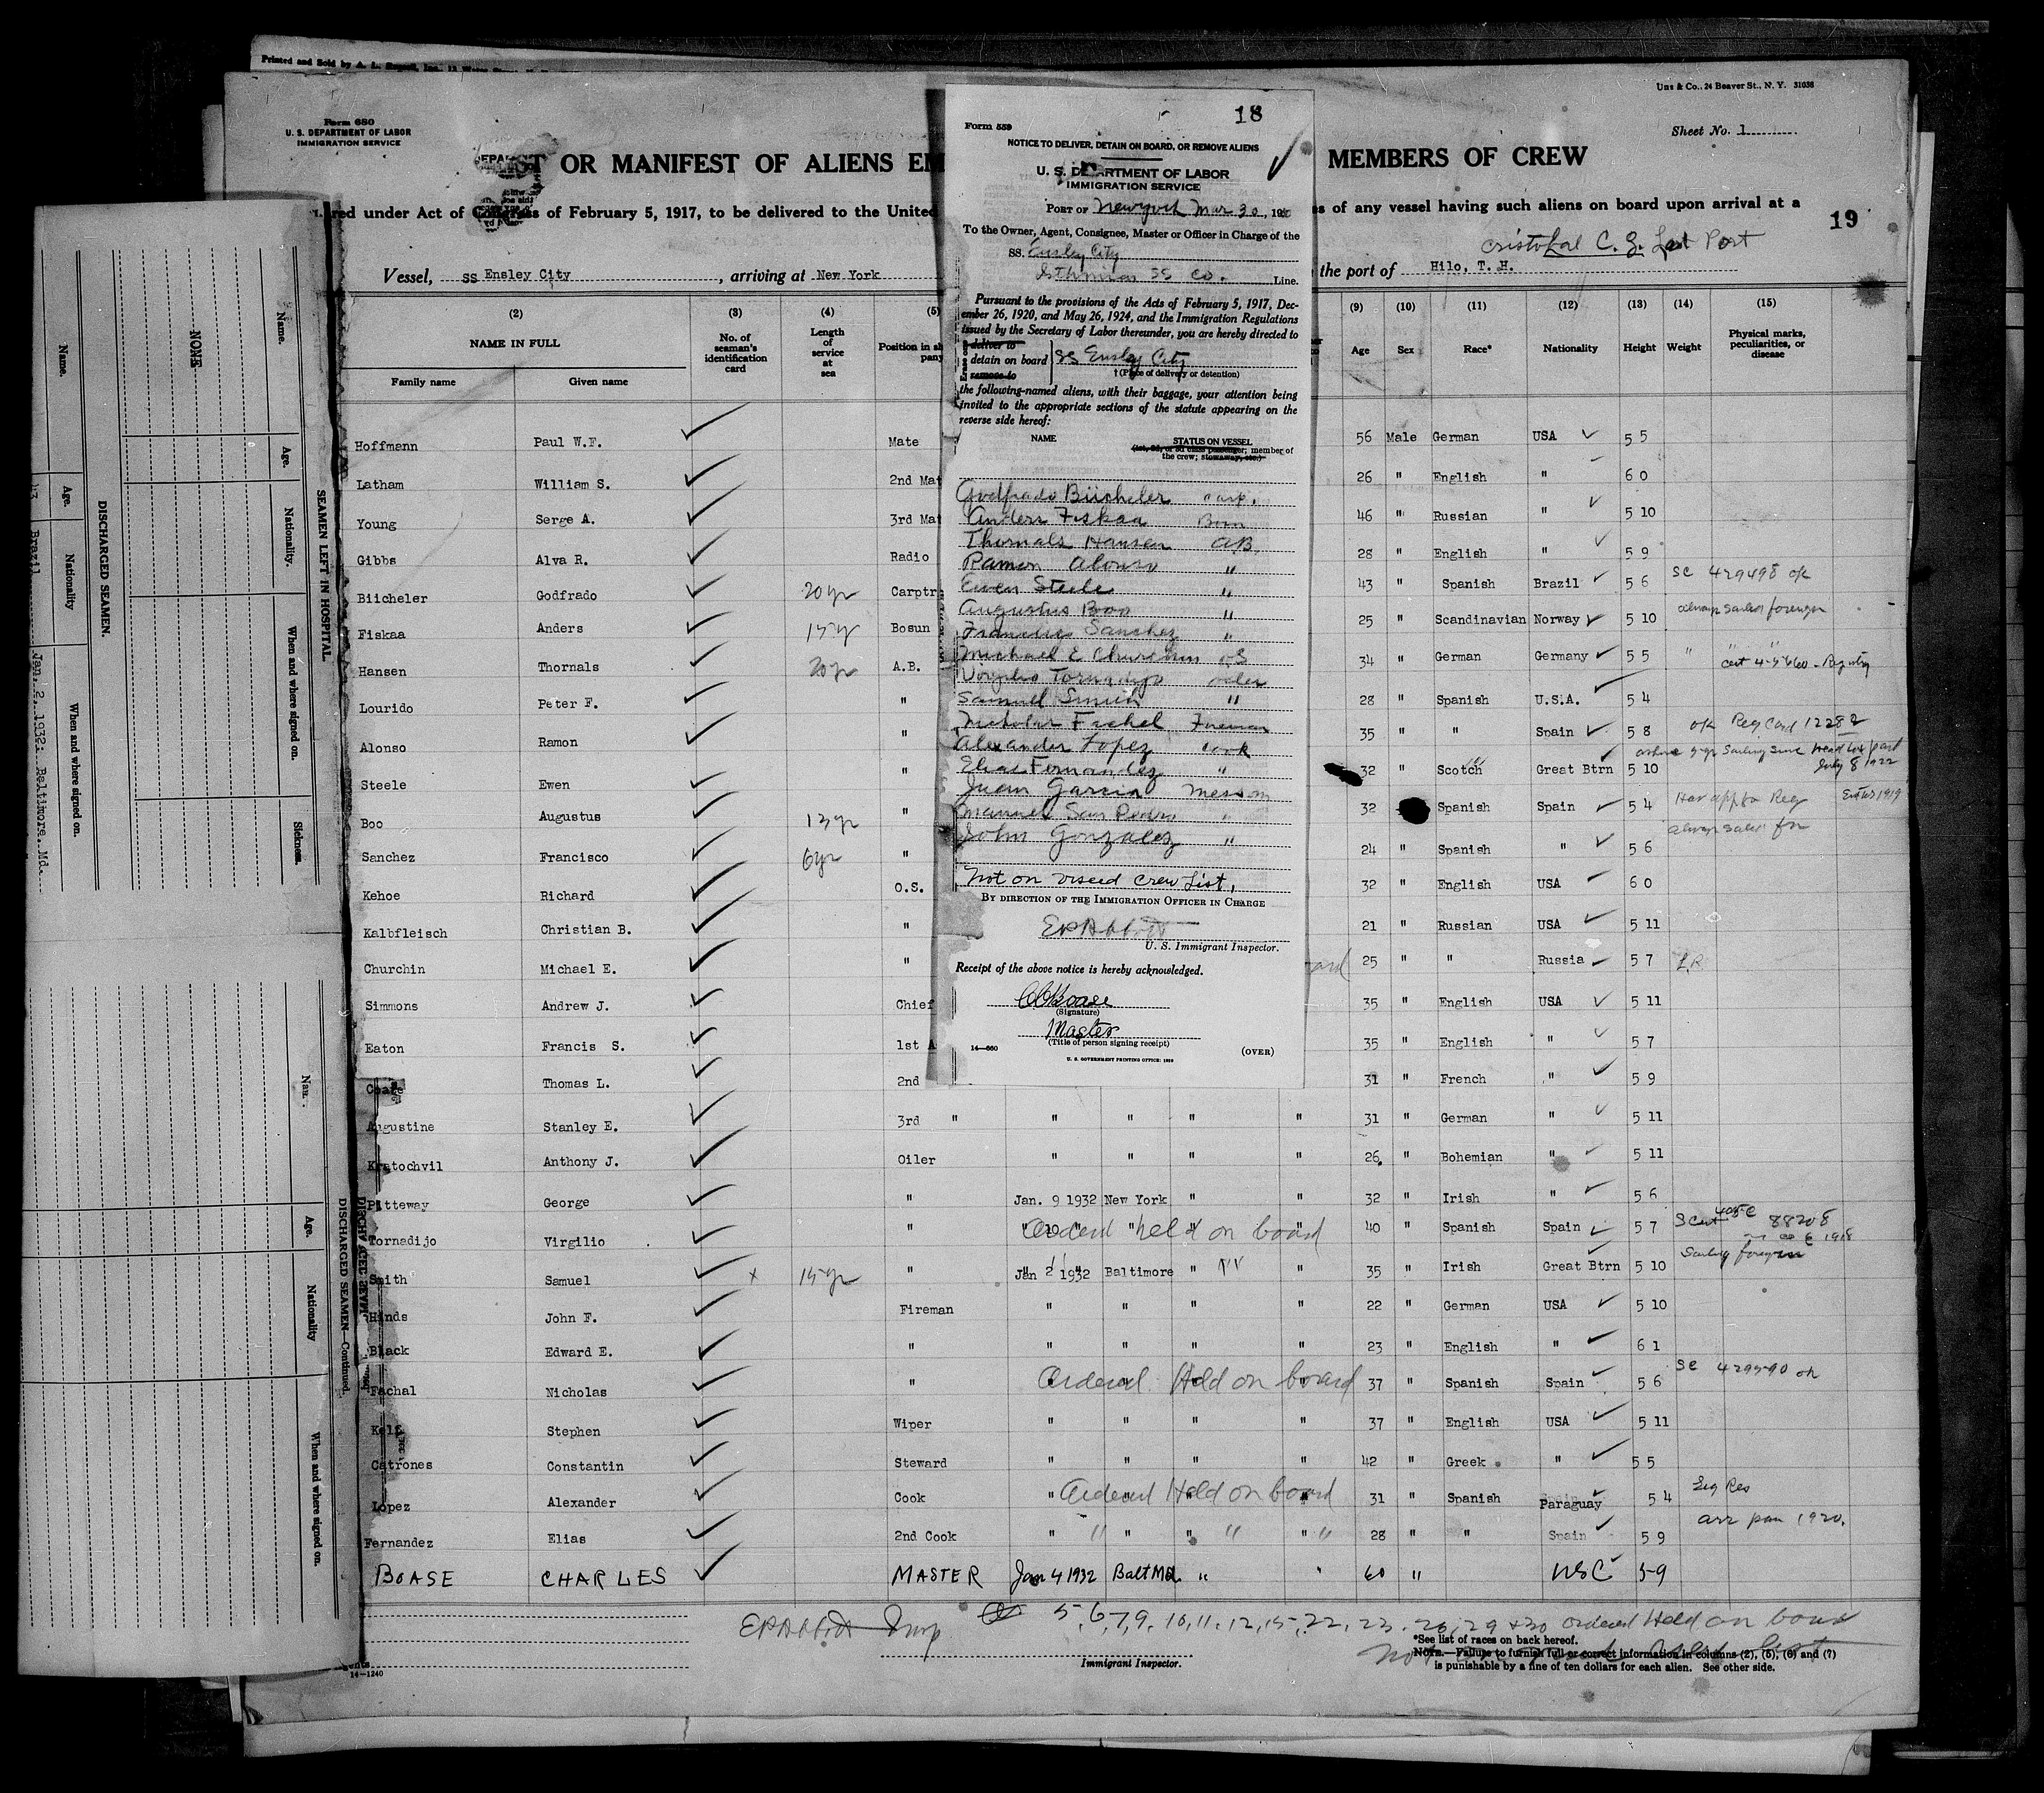 Printed and Sold by A. L.
Uns & Co., 24 Beaver St., N. Y. 31038
Form 680
U. S. DEPARTMENT OF LABOR
IMMIGRATION SERVICE
Sheet No. 1
OR MANIFEST OF ALIENS EM
MEMBERS OF CREW
red under Act of Congress of February 5, 1917, to be delivered to the United
s of any vessel having such aliens on board upon arrival at a
19
Cristobal C. Z. Last Port
Vessel, SS Ensley City, arriving at New York
the port of Hilo, T. H.
(2) (3) (4) (5) (9) (10) (11) (12) (13) (14) (15)
NAME IN FULL
Family name Given name
No. of seaman's identification card
Length of service at sea
Position in sh
pany
Age Sex Race* Nationality Height Weight Physical marks, peculiarities, or disease
Hoffmann Paul W.F. Mate 56 Male German USA 5 5
Latham William S. 2nd Mat 26 " English " 6 0
Young Serge A. 3rd Mat 46 " Russian " 5 10
Gibbs Alva R. Radio 28 " English " 5 9
Biicheler Godfrado 20 yr Carptr 43 " Spanish Brazil 5 6 SC 429498 ok
Fiskaa Anders 15 yr Bosun 25 " Scandinavian Norway 5 10 always sailed foreign
Hansen Thornals 20 yr A.B. 34 " German Germany 5 5 "
Lourido Peter F. " 28 " Spanish U.S.A. 5 4
Alonso Ramon " 35 " " Spain 5 8 ok Reg Card 12282
Steele Ewen " 32 " Scotch Great Btrn 5 10 July 8 1922
Boo Augustus 13 yr " 32 Spanish Spain 5 4
Sanchez Francisco 6 yr " 24 " Spanish " 5 6
Kehoe Richard O.S. 32 " English USA 6 0
Kalbfleisch Christian B. " 21 " Russian USA 5 11
Churchin Michael E. " 25 " " Russia 5 7 L.R.
Simmons Andrew J. Chief 35 " English USA 5 11
Eaton Francis S. 1st A 35 " English " 5 7
Thomas L. 2nd 31 " French " 5 9
Augustine Stanley E. 3rd " " " " " 31 " German " 5 11
Kratochvil Anthony J. Oiler " " " " 26 " Bohemian " 5 11
Pitteway George " Jan. 9 1932 New York " " 32 " Irish " 5 6
Tornadijo Virgilio " Ordered held on board 40 " Spanish Spain 5 7
Smith Samuel x 15 yr " Jan 2 1932 Baltimore " 35 " Irish Great Btrn 5 10
Hinds John F. Fireman " " " " 22 " German USA 5 10
Black Edward E. " " " " " 23 " English " 6 1
Fachal Nicholas " Ordered Held on board 37 " Spanish Spain 5 6 SC 429590 ok
Stephen Wiper " " " " 37 " English USA 5 11
Catrones Constantin Steward " " " " 42 " Greek " 5 5
Lopez Alexander Cook " Ordered Held on board 31 " Spanish Paraguay 5 4 Leg Res
Fernandez Elias 2nd Cook " " " " 28 " " Spain 5 9
BOASE CHARLES MASTER Jan 4 1932 Balt Md. " " 60 " USC 5-9
5, 6, 7, 9, 10, 11, 12, 15, 22, 23, 26, 29 & 30 ordered Held on board
Immigrant Inspector.
*See list of races on back hereof.
NOTE.—Failure to furnish full or correct information in columns (2), (5), (6) and (7)
is punishable by a fine of ten dollars for each alien. See other side.
14—1240
18
Form 559
NOTICE TO DELIVER, DETAIN ON BOARD, OR REMOVE ALIENS
U. S. DEPARTMENT OF LABOR
IMMIGRATION SERVICE
PORT OF New York Mar 30, 19
To the Owner, Agent, Consignee, Master or Officer in Charge of the
SS. Ensley City
Isthmian SS Co. Line.
Pursuant to the provisions of the Acts of February 5, 1917, Dec-
ember 26, 1920, and May 26, 1924, and the Immigration Regulations
issued by the Secretary of Labor thereunder, you are hereby directed to
deliver to
detain on board SS Ensley City
remove to
† (Place of delivery or detention)
the following-named aliens, with their baggage, your attention being
invited to the appropriate sections of the statute appearing on the
reverse side hereof:
NAME STATUS ON VESSEL
(1st, 2d, or 3d class passenger; member of
the crew; stowaway, etc.)
Godfrado Biicheler carp.
Anders Fiskaa Bosn
Thornals Hansen AB.
Ramon Alonso "
Ewen Steele "
Augustus Boo "
Francisco Sanchez "
Michael E Churchin OS
Virgilio Tornadijo oiler
Samuel Smith "
Nicholas Fachel Fireman
Alexander Lopez Cook
Elias Fernandez "
Juan Garcia Messm
Manuel San Pedro "
John Gonzalez "
Not on visaed Crew List.
BY DIRECTION OF THE IMMIGRATION OFFICER IN CHARGE
U. S. Immigrant Inspector.
Receipt of the above notice is hereby acknowledged.
CC Boase
(Signature)
Master
(Title of person signing receipt)
14—660 (OVER)
U. S. GOVERNMENT PRINTING OFFICE: 1929
SEAMEN LEFT IN HOSPITAL
Name. Age. Nationality. When and where signed on. Sickness.
NONE
DISCHARGED SEAMEN.
Name. Age. Nationality When and where signed on.
43 Brazil Jan. 2, 1932: Baltimore. Md.
DISCHARGED SEAMEN—Continued.
Age. Nationality When and where signed on.